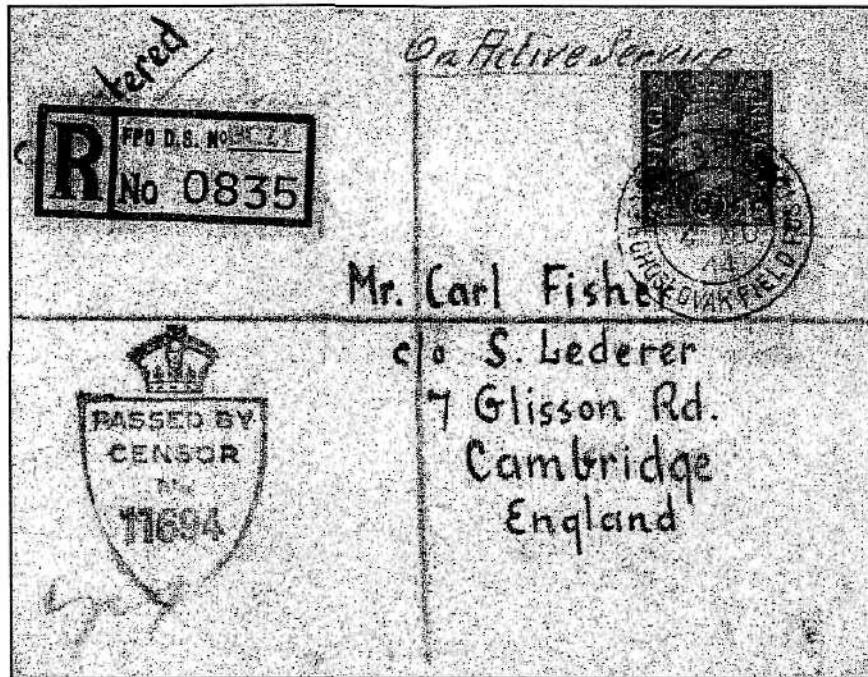 On Active Service
tered
R
FPO D.S. No
No 0835
FIELD POST
Mr. Carl Fisher
c/o S. Lederer
7 Glisson Rd.
Cambridge
England
PASSED BY
CENSOR
No.
11694